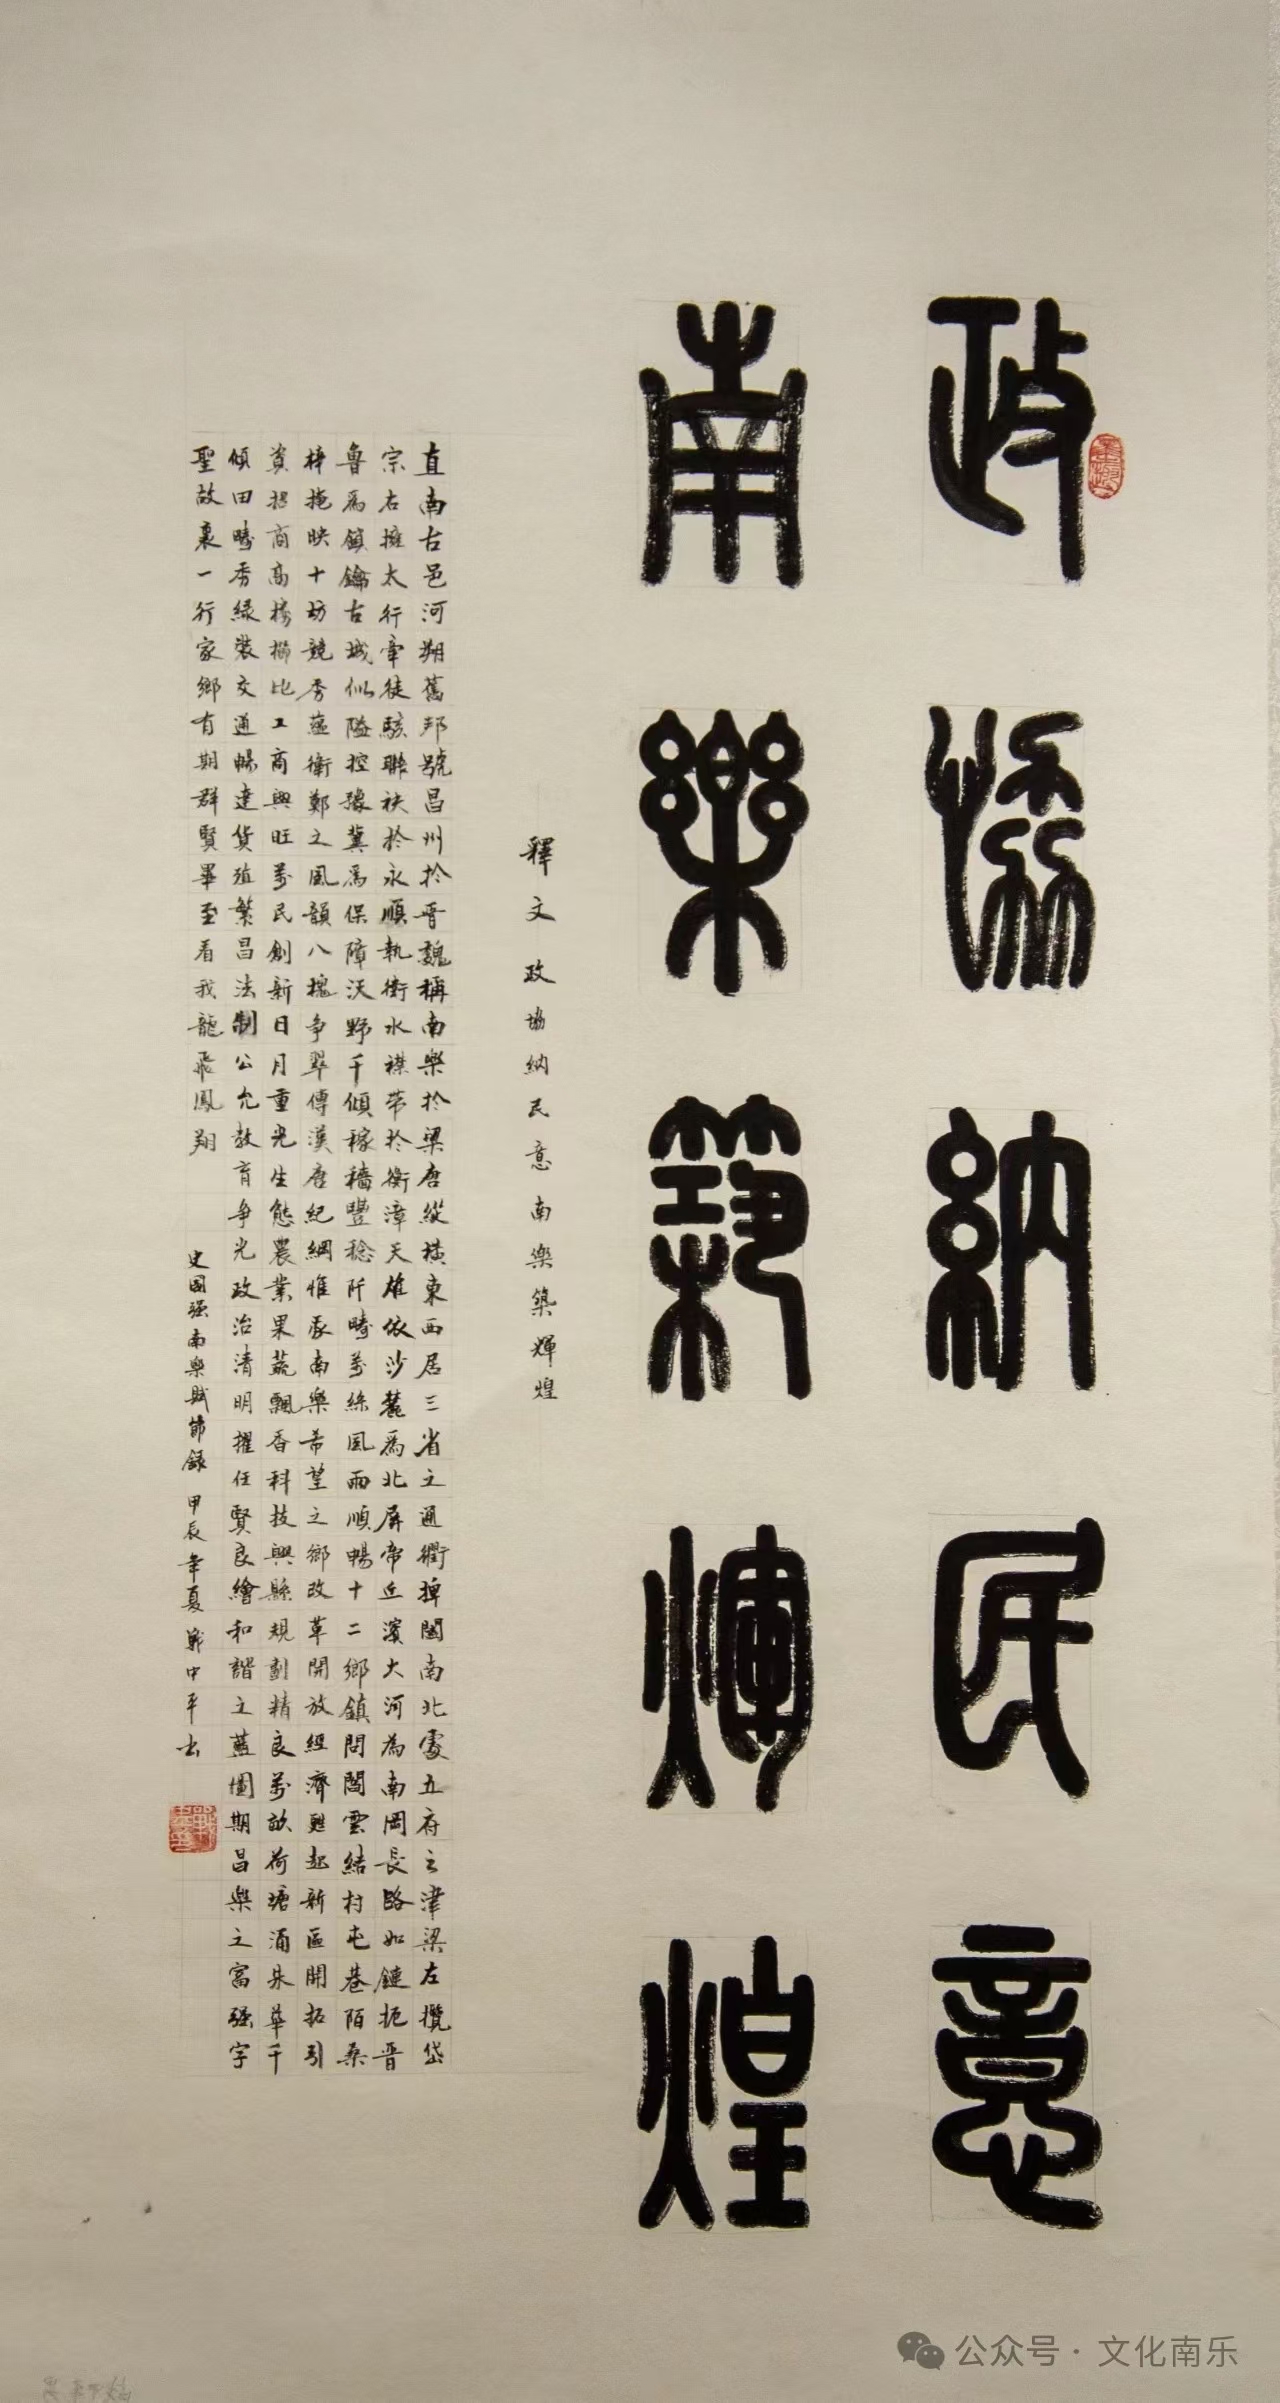 政協納民意
南樂築輝煌
釋文 政協納民意南樂築輝煌
直南古邑河朔舊邦號昌州於晋魏稱南樂於梁唐縱橫東西居三省之通衢捭闔南北處五府之津梁左攬岱
宗右擁太行牽徒駭聯袂於永順執衛水襟帶於衡漳天雄依沙麓爲北屏帝丘濱大河為南岡長路如鏈扼晋
魯爲鎖鑰古城似隘控豫冀爲保障沃野千傾稼穡豐稔阡疇萬絲風雨順暢十二鄉鎮間閣雲結村屯巷陌桑
梓掩映十坊競秀蘊衛鄭之風韻八槐争翠傳漢唐紀綱惟我南樂希望之鄉改革開放經濟甦起新區開拓引
資招商高樓櫛比工商興旺萬民創新日月重光生態農業果蔬飄香科技興縣規劃精良萬畝荷塘涌朱華千
傾田疇秀綠裝交通暢達貨殖繁昌法制公允教育争光政治清明擢任賢良繪和諧之藍圖期昌樂之富强字
聖故裏一行家鄉有期群賢畢至看我龍飛鳳翔
史國强南樂賦節録 甲辰年夏 戰中平书
公众号·文化南乐